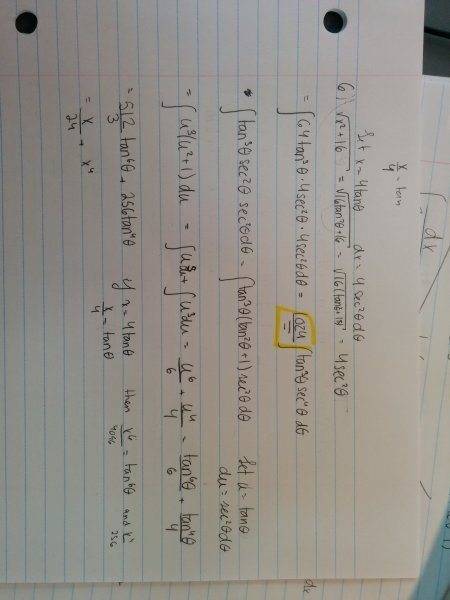 ∫ dx
x/4 = tan
Let x = 4tanθ dx = 4 sec²θ dθ
6) √x²+16 = √16tan²θ+16 = √16(tan²θ+1) = 4sec²θ
= ∫64 tan³θ · 4sec²θ · 4sec²θ dθ = 1024 ∫tan³θ sec⁴θ dθ
* ∫tan³θ sec²θ sec²θ dθ = ∫tan³θ (tan²θ+1) sec²θ dθ Let u = tanθ
du = sec²θ dθ
= ∫u³(u²+1) du = ∫u⁵du + ∫u³du = u⁶/6 + u⁴/4 = tan⁶θ/6 + tan⁴θ/4
= 512/3 tan⁶θ + 256tan⁴θ if x = 4tanθ then x⁶/4096 = tan⁶θ and x⁴/256
x/4 = tanθ
= x/24 + x⁴
dx